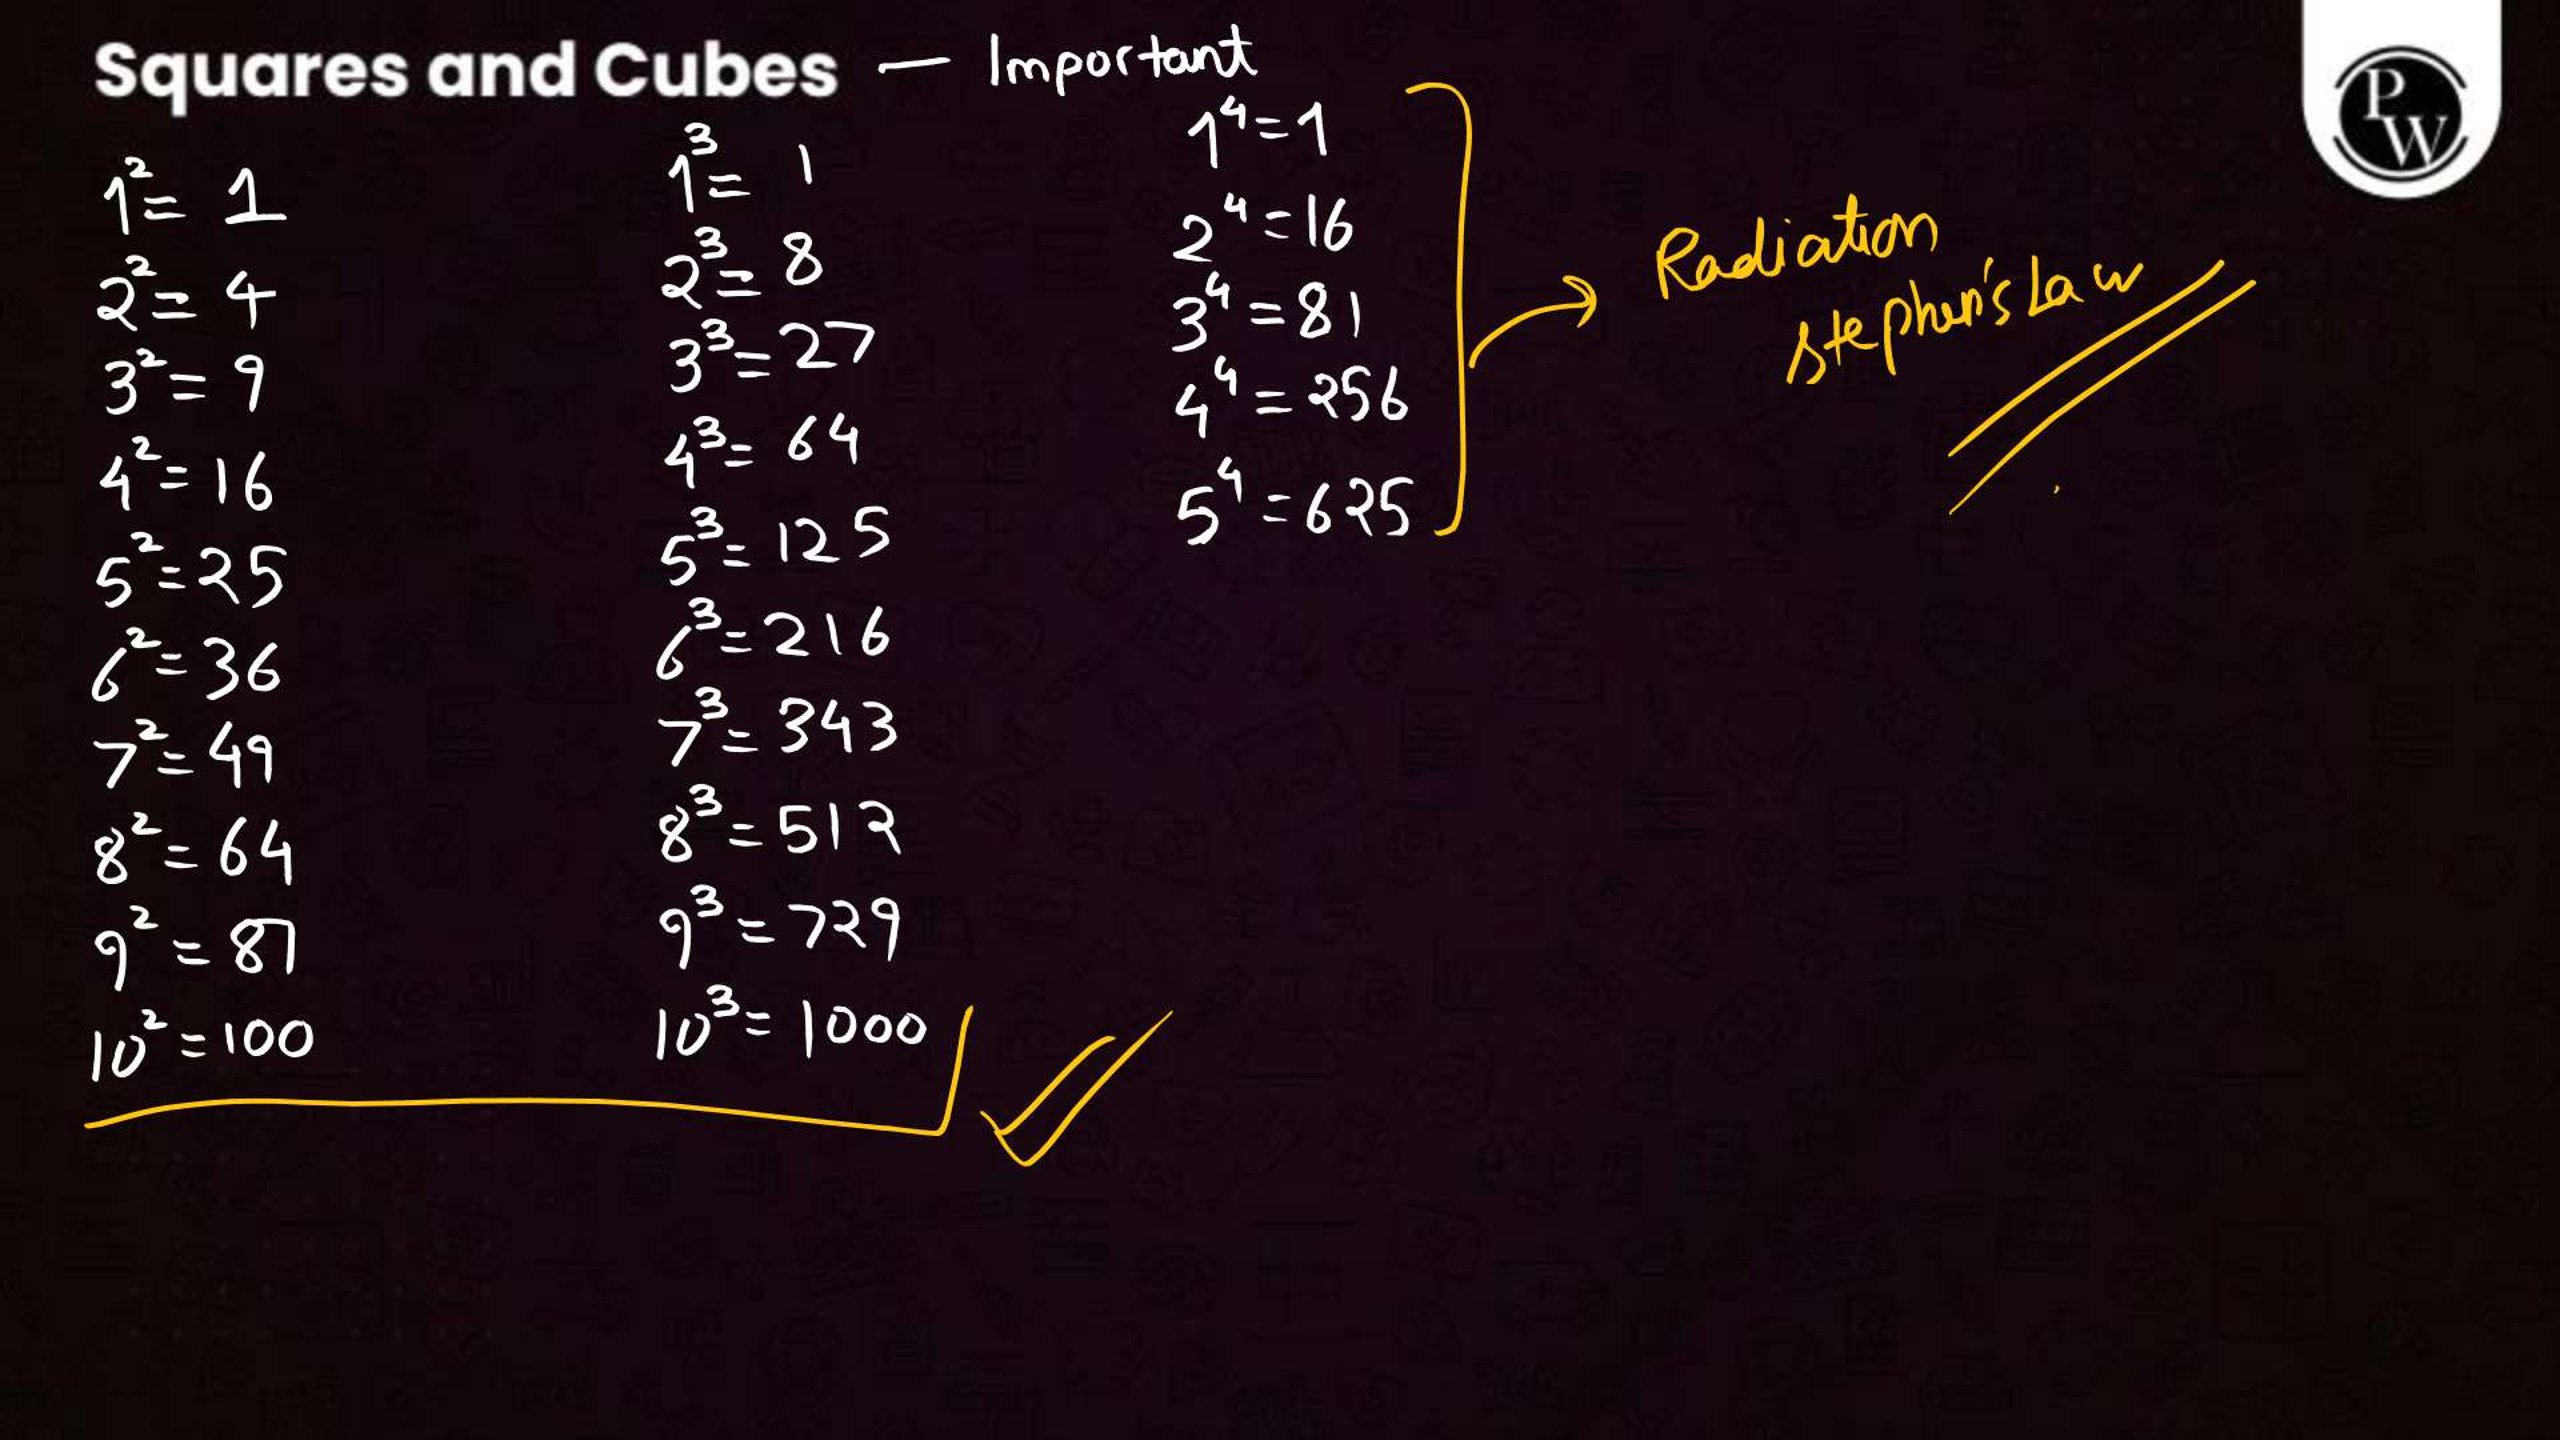 Squares and Cubes — Important
1² = 1
2² = 4
3² = 9
4² = 16
5² = 25
6² = 36
7² = 49
8² = 64
9² = 81
10² = 100
1³ = 1
2³ = 8
3³ = 27
4³ = 64
5³ = 125
6³ = 216
7³ = 343
8³ = 512
9³ = 729
10³ = 1000
1⁴ = 1
2⁴ = 16
3⁴ = 81
4⁴ = 256
5⁴ = 625
Radiation
Stephen's Law
PW